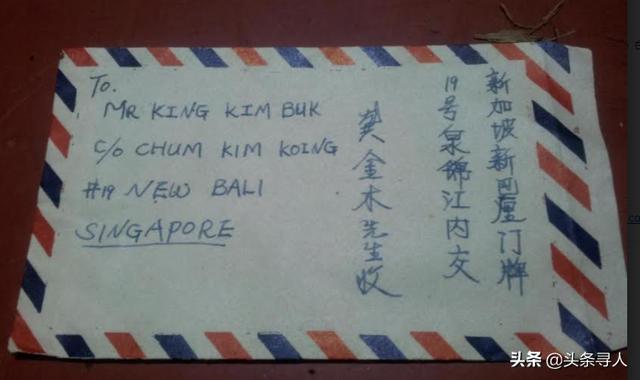 To.
MR KING KIM BUK
C/O CHUM KIM KOING
#19 NEW BALI
SINGAPORE
新加坡新巴厘门牌
19号泉锦江内交
龚金木先生收
头条 @头条寻人